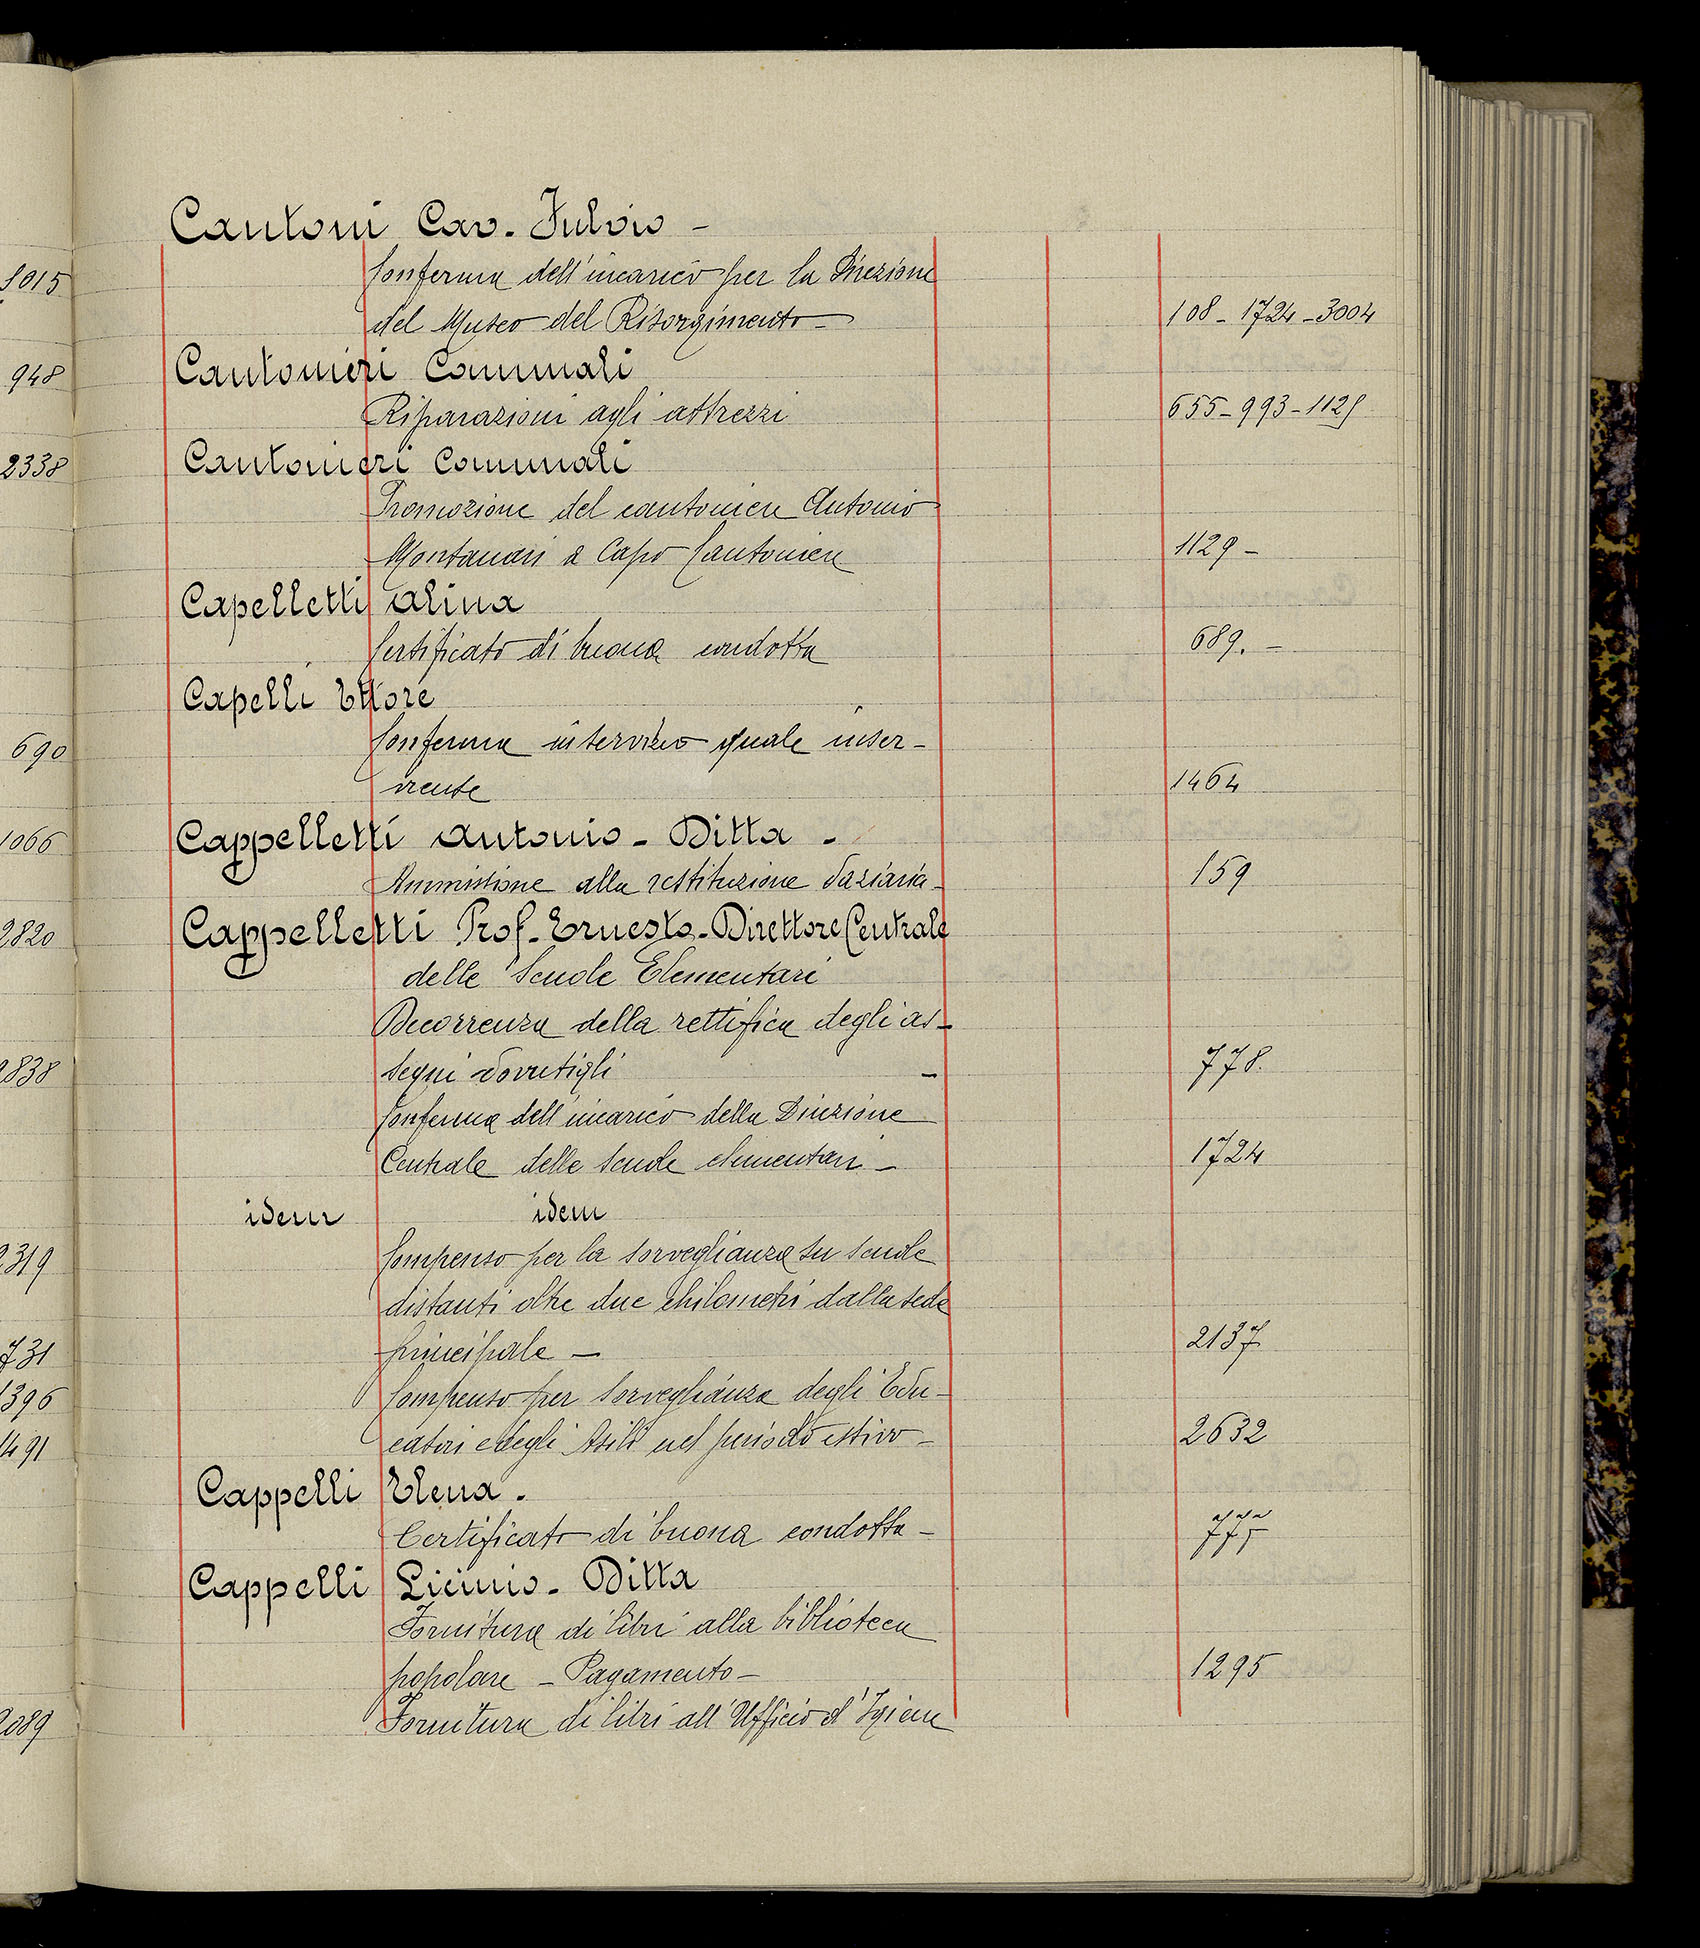 Cantoni Cav. Fulvio -
Conferma dell'incarico per la Direzione
del Museo del Risorgimento - 108 - 1724 - 3004
Cantonieri Comunali
Riparazioni agli attrezzi 655 - 993 - 1129
Cantonieri Comunali
Promozione del cantoniere Antonio
Montanari a Capo Cantoniere 1129 -
Capelletti Alina
Certificato di buona condotta 689. -
Capelli Ettore
Conferma in servizio quale inser-
viente 1464
Cappelletti Antonio - Ditta -
Ammissione alla restituzione daziaria - 159
Cappelletti Prof. Ernesto - Direttore Centrale
delle Scuole Elementari
Decorrenza della rettifica degli as-
segni dovutigli - 778.
Conferma dell'incarico della Direzione
Centrale delle scuole elementari - 1724
idem idem
Compenso per la sorveglianza su scuole
distanti oltre due chilometri dalla sede
principale - 2137
Compenso per sorveglianza degli Edu-
catori e degli Asili nel periodo estivo - 2632
Cappelli Elena.
Certificato di buona condotta - 775
Cappelli Licinio - Ditta
Fornitura di libri alla biblioteca
popolare - Pagamento - 1295
Fornitura di libri all'Ufficio d'Igiene
948
2338
690
1066
2820
2319
731
1396
1491
2089